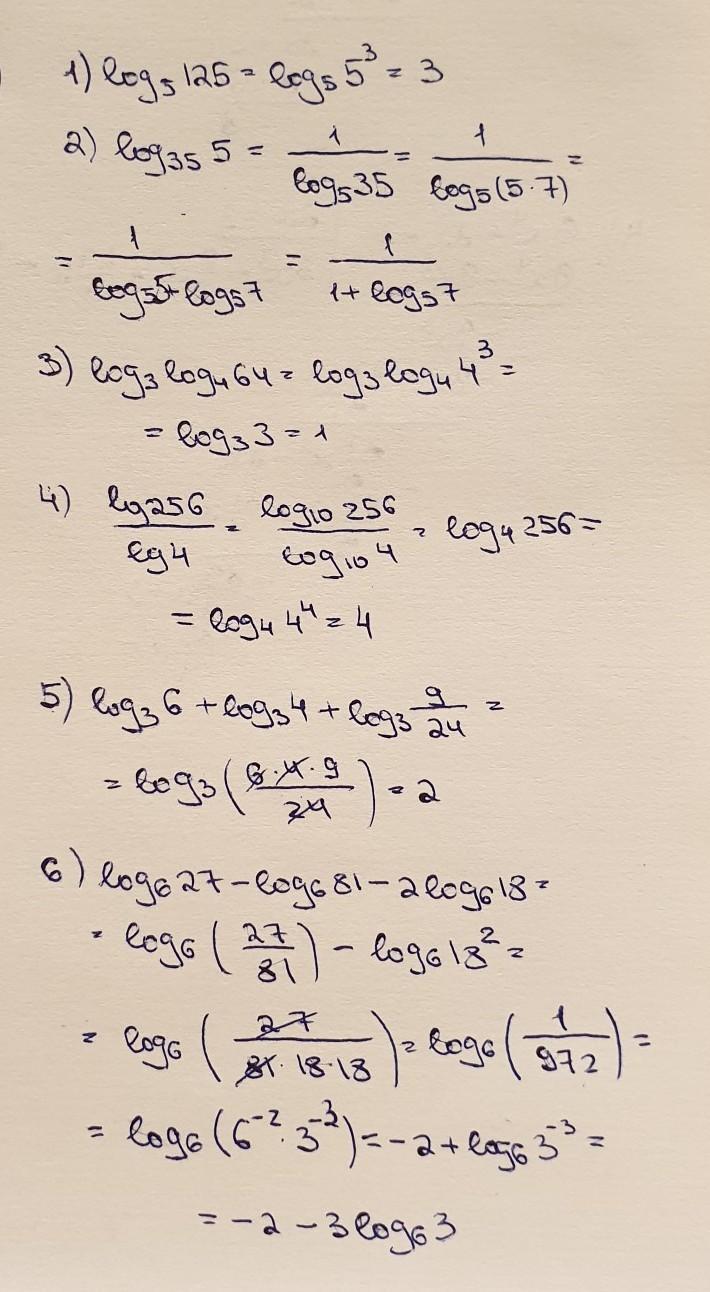 1) log₅ 125 = log₅ 5³ = 3
2) log₃₅ 5 = 1/(log₅ 35) = 1/(log₅(5·7)) =
= 1/(log₅ 5 + log₅ 7) = 1/(1 + log₅ 7)
3) log₃ log₄ 64 = log₃ log₄ 4³ =
= log₃ 3 = 1
4) lg 256/lg 4 = log₁₀ 256/log₁₀ 4 = log₄ 256 =
= log₄ 4⁴ = 4
5) log₃ 6 + log₃ 4 + log₃ 9/24 =
= log₃ (6·4·9/24) = 2
6) log₆ 27 - log₆ 81 - 2 log₆ 18 =
= log₆ (27/81) - log₆ 18² =
= log₆ (27/(81·18·18)) = log₆ (1/972) =
= log₆ (6⁻²·3⁻³) = -2 + log₆ 3⁻³ =
= -2 - 3 log₆ 3